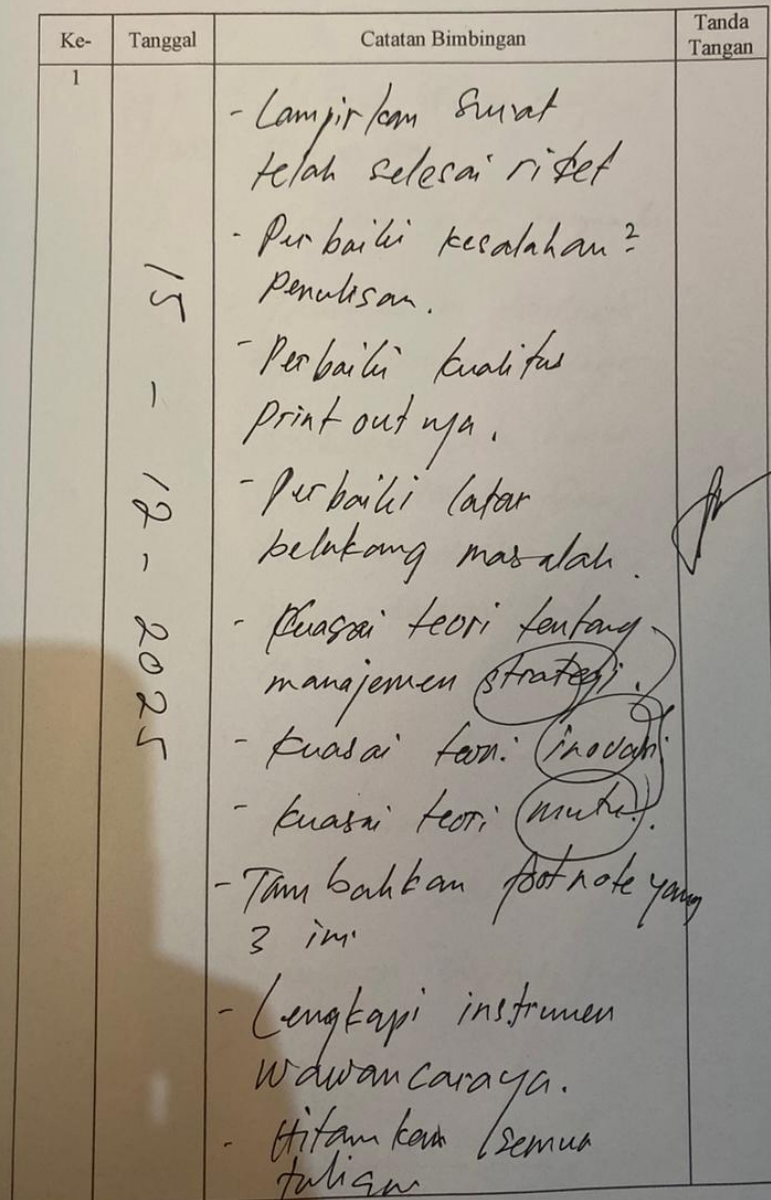 Ke- Tanggal Catatan Bimbingan Tanda Tangan
1
15 - 12 - 2025
- Lampirkan Surat
telah selesai riset
- Perbaiki kesalahan²
penulisan.
- Perbaiki kualitas
print out nya.
- Perbaiki latar
belakang masalah.
- Kuasai teori tentang
manajemen strategi.
- Kuasai teori inovasi
- Kuasai teori mutu.
- Tambahkan footnote yang
3 ini
- Lengkapi instrumen
wawancaraya.
- Hitamkan semua
tulisan